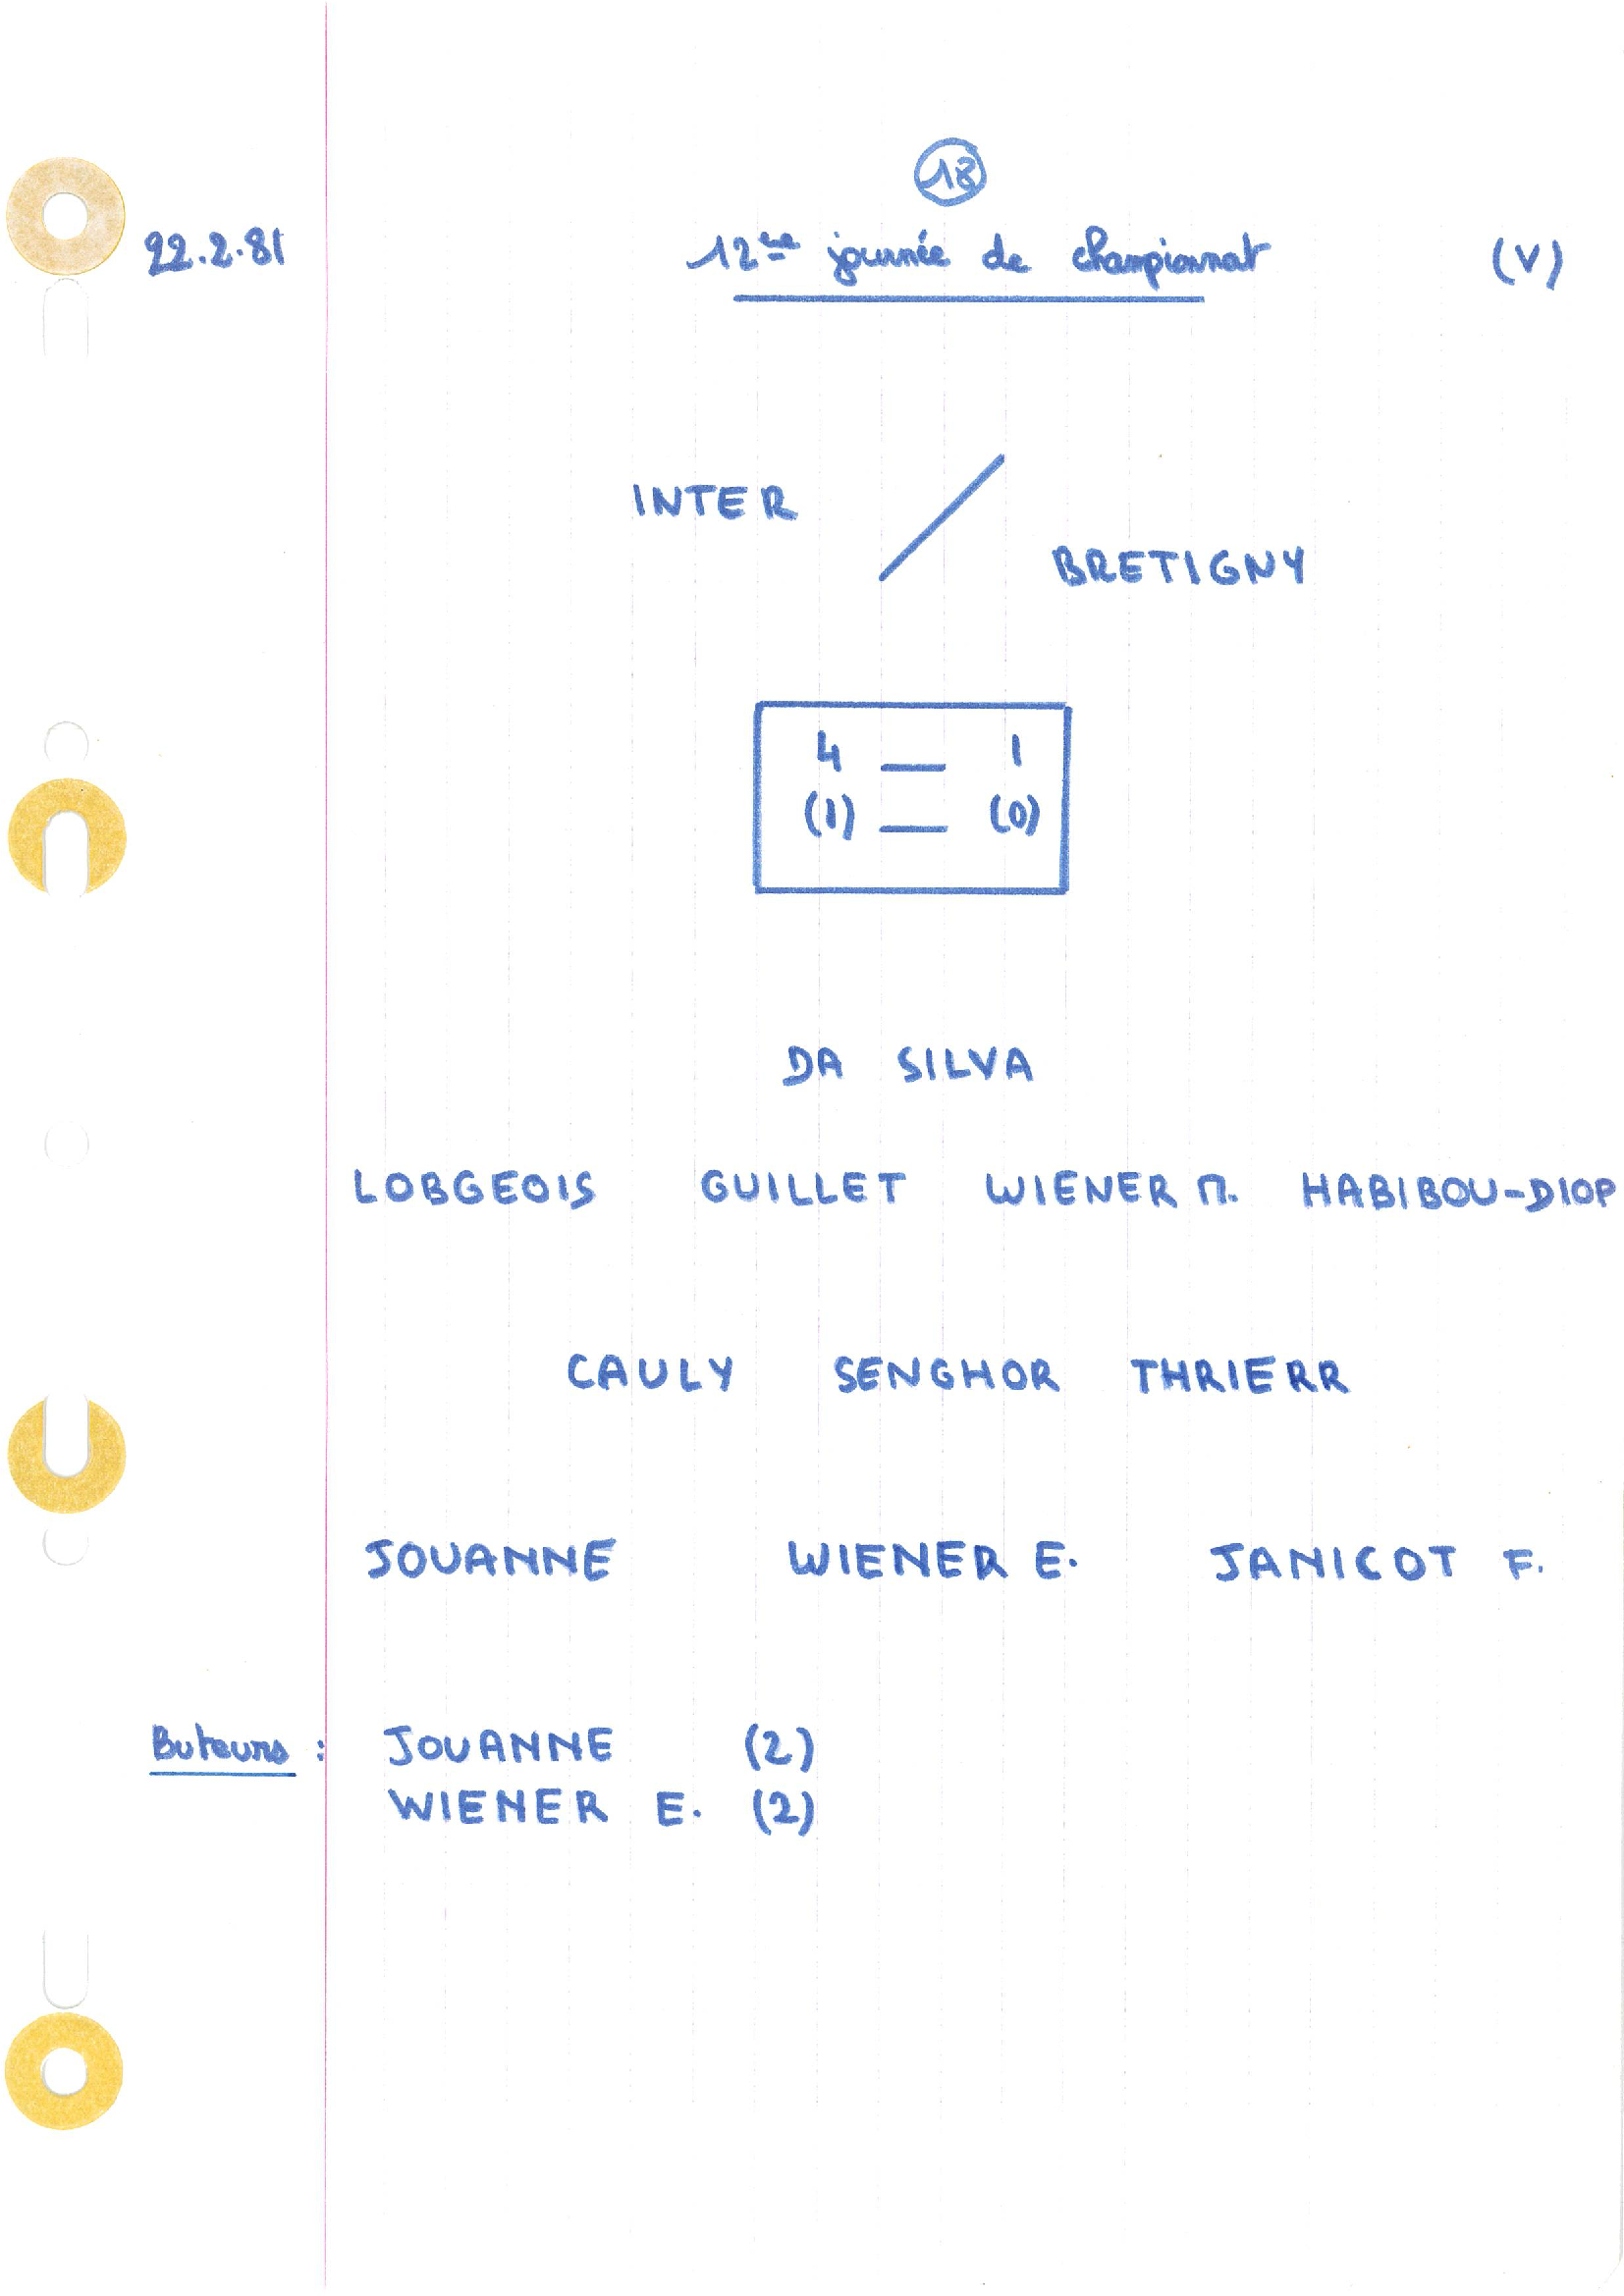 18
22.2.81 12ème journée de championnat (V)
INTER
BRETIGNY
4 — 1
(1) — (0)
DA SILVA
LOBGEOIS GUILLET WIENER M. HABIBOU-DIOP
CAULY SENGHOR THRIERR
JOUANNE WIENER E. JANICOT F.
Buteurs : JOUANNE (2)
WIENER E. (2)